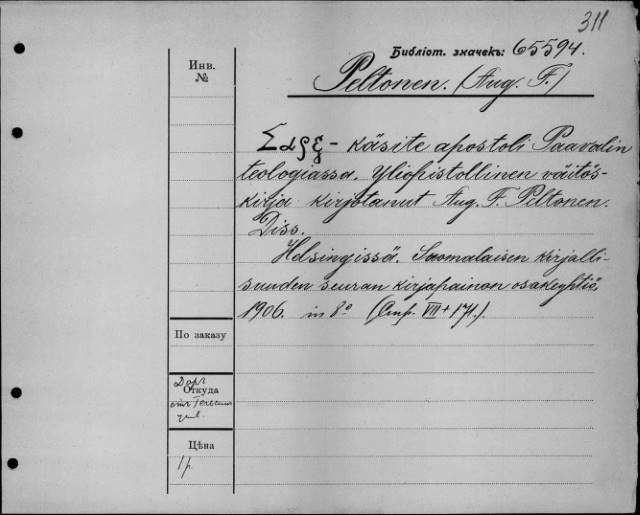 311
Библіот. значекъ: 65594.
Инв.
№
Peltonen. (Aug. F.)
Σαρξ - käsite apostoli Paavalin
teologiassa. Yliopistollinen väitös-
kirja kirjotanut Aug. F. Peltonen.
Diss.
Helsingissä. Suomalaisen kirjalli-
suuden seuran kirjapainon osakeyhtiö
1906. in 8° (Стр. VIII + 171.).
По заказу
Откуда
Цѣна
1 р